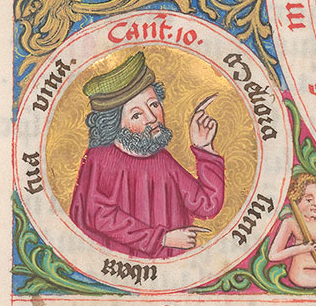 Cant. 10.
Meliora
sunt
ubera
tua
vino.